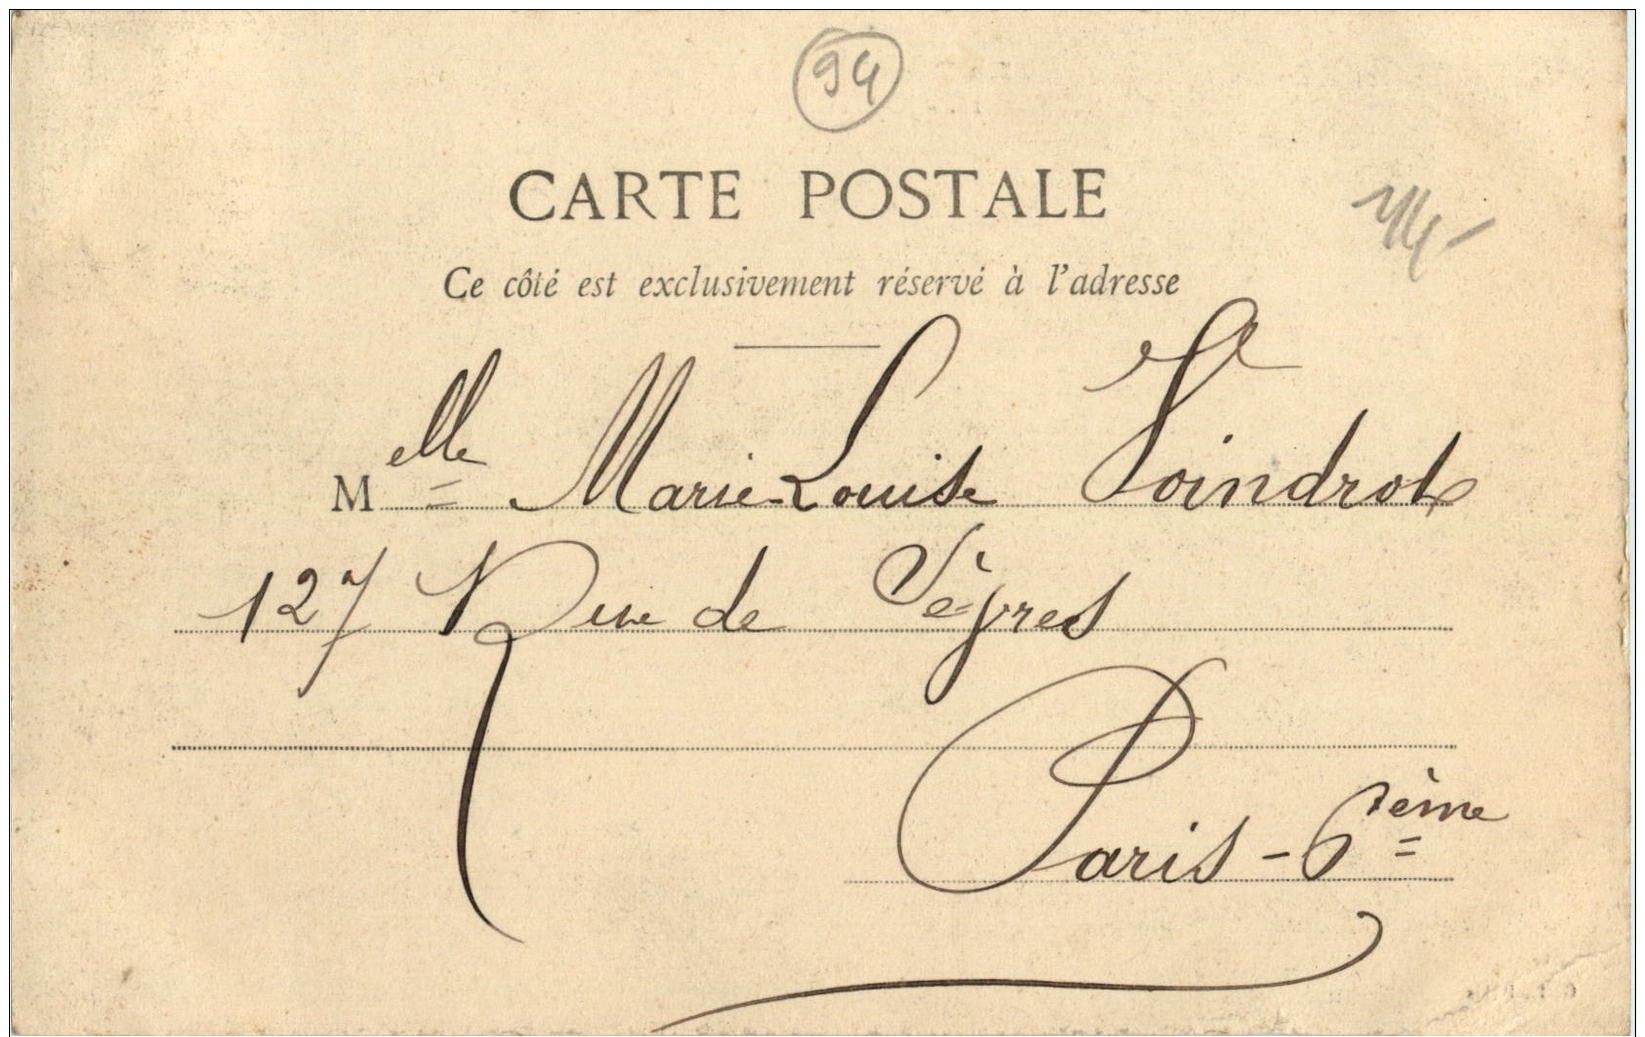 94
CARTE POSTALE
Ce côté est exclusivement réservé à l'adresse
Melle Marie-Louise Voindrot
127 Rue de Sèvres
Paris - 6ième